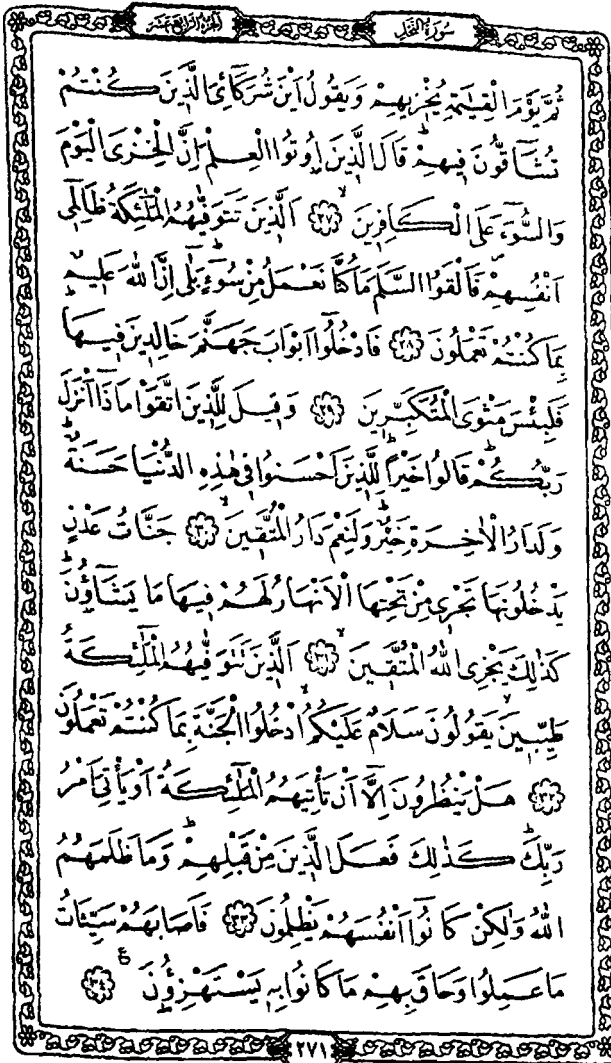 سُورَةُ النَّحْلِ
اَلْجُزْءُ الرَّابِعَ عَشَرَ
ثُمَّ يَوْمَ الْقِيٰمَةِ يُخْزٖيهِمْ وَيَقُولُ اَيْنَ شُرَكَٓائِيَ الَّذٖينَ كُنْتُمْ
تُشَٓاقُّونَ فٖيهِمْؕ قَالَ الَّذٖينَ اُو۫تُوا الْعِلْمَ اِنَّ الْخِزْيَ الْيَوْمَ
وَالسُّٓوءَ عَلَى الْكَافِرٖينَۙ ﴿٢٧﴾ اَلَّذٖينَ تَتَوَفّٰيهُمُ الْمَلٰٓئِكَةُ ظَالِمٖٓي
اَنْفُسِهِمْࣕ فَاَلْقَوُا السَّلَمَ مَا كُنَّا نَعْمَلُ مِنْ سُٓوءٍؕ بَلٰٓى اِنَّ اللّٰهَ عَلٖيمٌ
بِمَا كُنْتُمْ تَعْمَلُونَ ﴿٢٨﴾ فَادْخُلُٓوا اَبْوَابَ جَهَنَّمَ خَالِدٖينَ فٖيهَاؕ
فَلَبِئْسَ مَثْوَى الْمُتَكَبِّرٖينَ ﴿٢٩﴾ وَقٖيلَ لِلَّذٖينَ اتَّقَوْا مَاذَٓا اَنْزَلَ
رَبُّكُمْؕ قَالُوا خَيْراًؕ لِلَّذٖينَ اَحْسَنُوا فٖي هٰذِهِ الدُّنْيَا حَسَنَةٌؕ
وَلَدَارُ الْاٰخِرَةِ خَيْرٌؕ وَلَنِعْمَ دَارُ الْمُتَّقٖينَۙ ﴿٣٠﴾ جَنَّاتُ عَدْنٍ
يَدْخُلُونَهَا تَجْرٖي مِنْ تَحْتِهَا الْاَنْهَارُ لَهُمْ فٖيهَا مَا يَشَٓاؤُ۫نَؕ
كَذٰلِكَ يَجْزِي اللّٰهُ الْمُتَّقٖينَۙ ﴿٣١﴾ اَلَّذٖينَ تَتَوَفّٰيهُمُ الْمَلٰٓئِكَةُ
طَيِّبٖينَۙ يَقُولُونَ سَلَامٌ عَلَيْكُمُۙ ادْخُلُوا الْجَنَّةَ بِمَا كُنْتُمْ تَعْمَلُونَ
﴿٣٢﴾ هَلْ يَنْظُرُونَ اِلَّٓا اَنْ تَأْتِيَهُمُ الْمَلٰٓئِكَةُ اَوْ يَأْتِيَ اَمْرُ
رَبِّكَؕ كَذٰلِكَ فَعَلَ الَّذٖينَ مِنْ قَبْلِهِمْؕ وَمَا ظَلَمَهُمُ
اللّٰهُ وَلٰكِنْ كَانُٓوا اَنْفُسَهُمْ يَظْلِمُونَ ﴿٣٣﴾ فَاَصَابَهُمْ سَيِّـَٔاتُ
مَا عَمِلُوا وَحَاقَ بِهِمْ مَا كَانُوا بِهٖ يَسْتَهْزِؤُ۫نَࣖ ﴿٣٤﴾
٢٧١